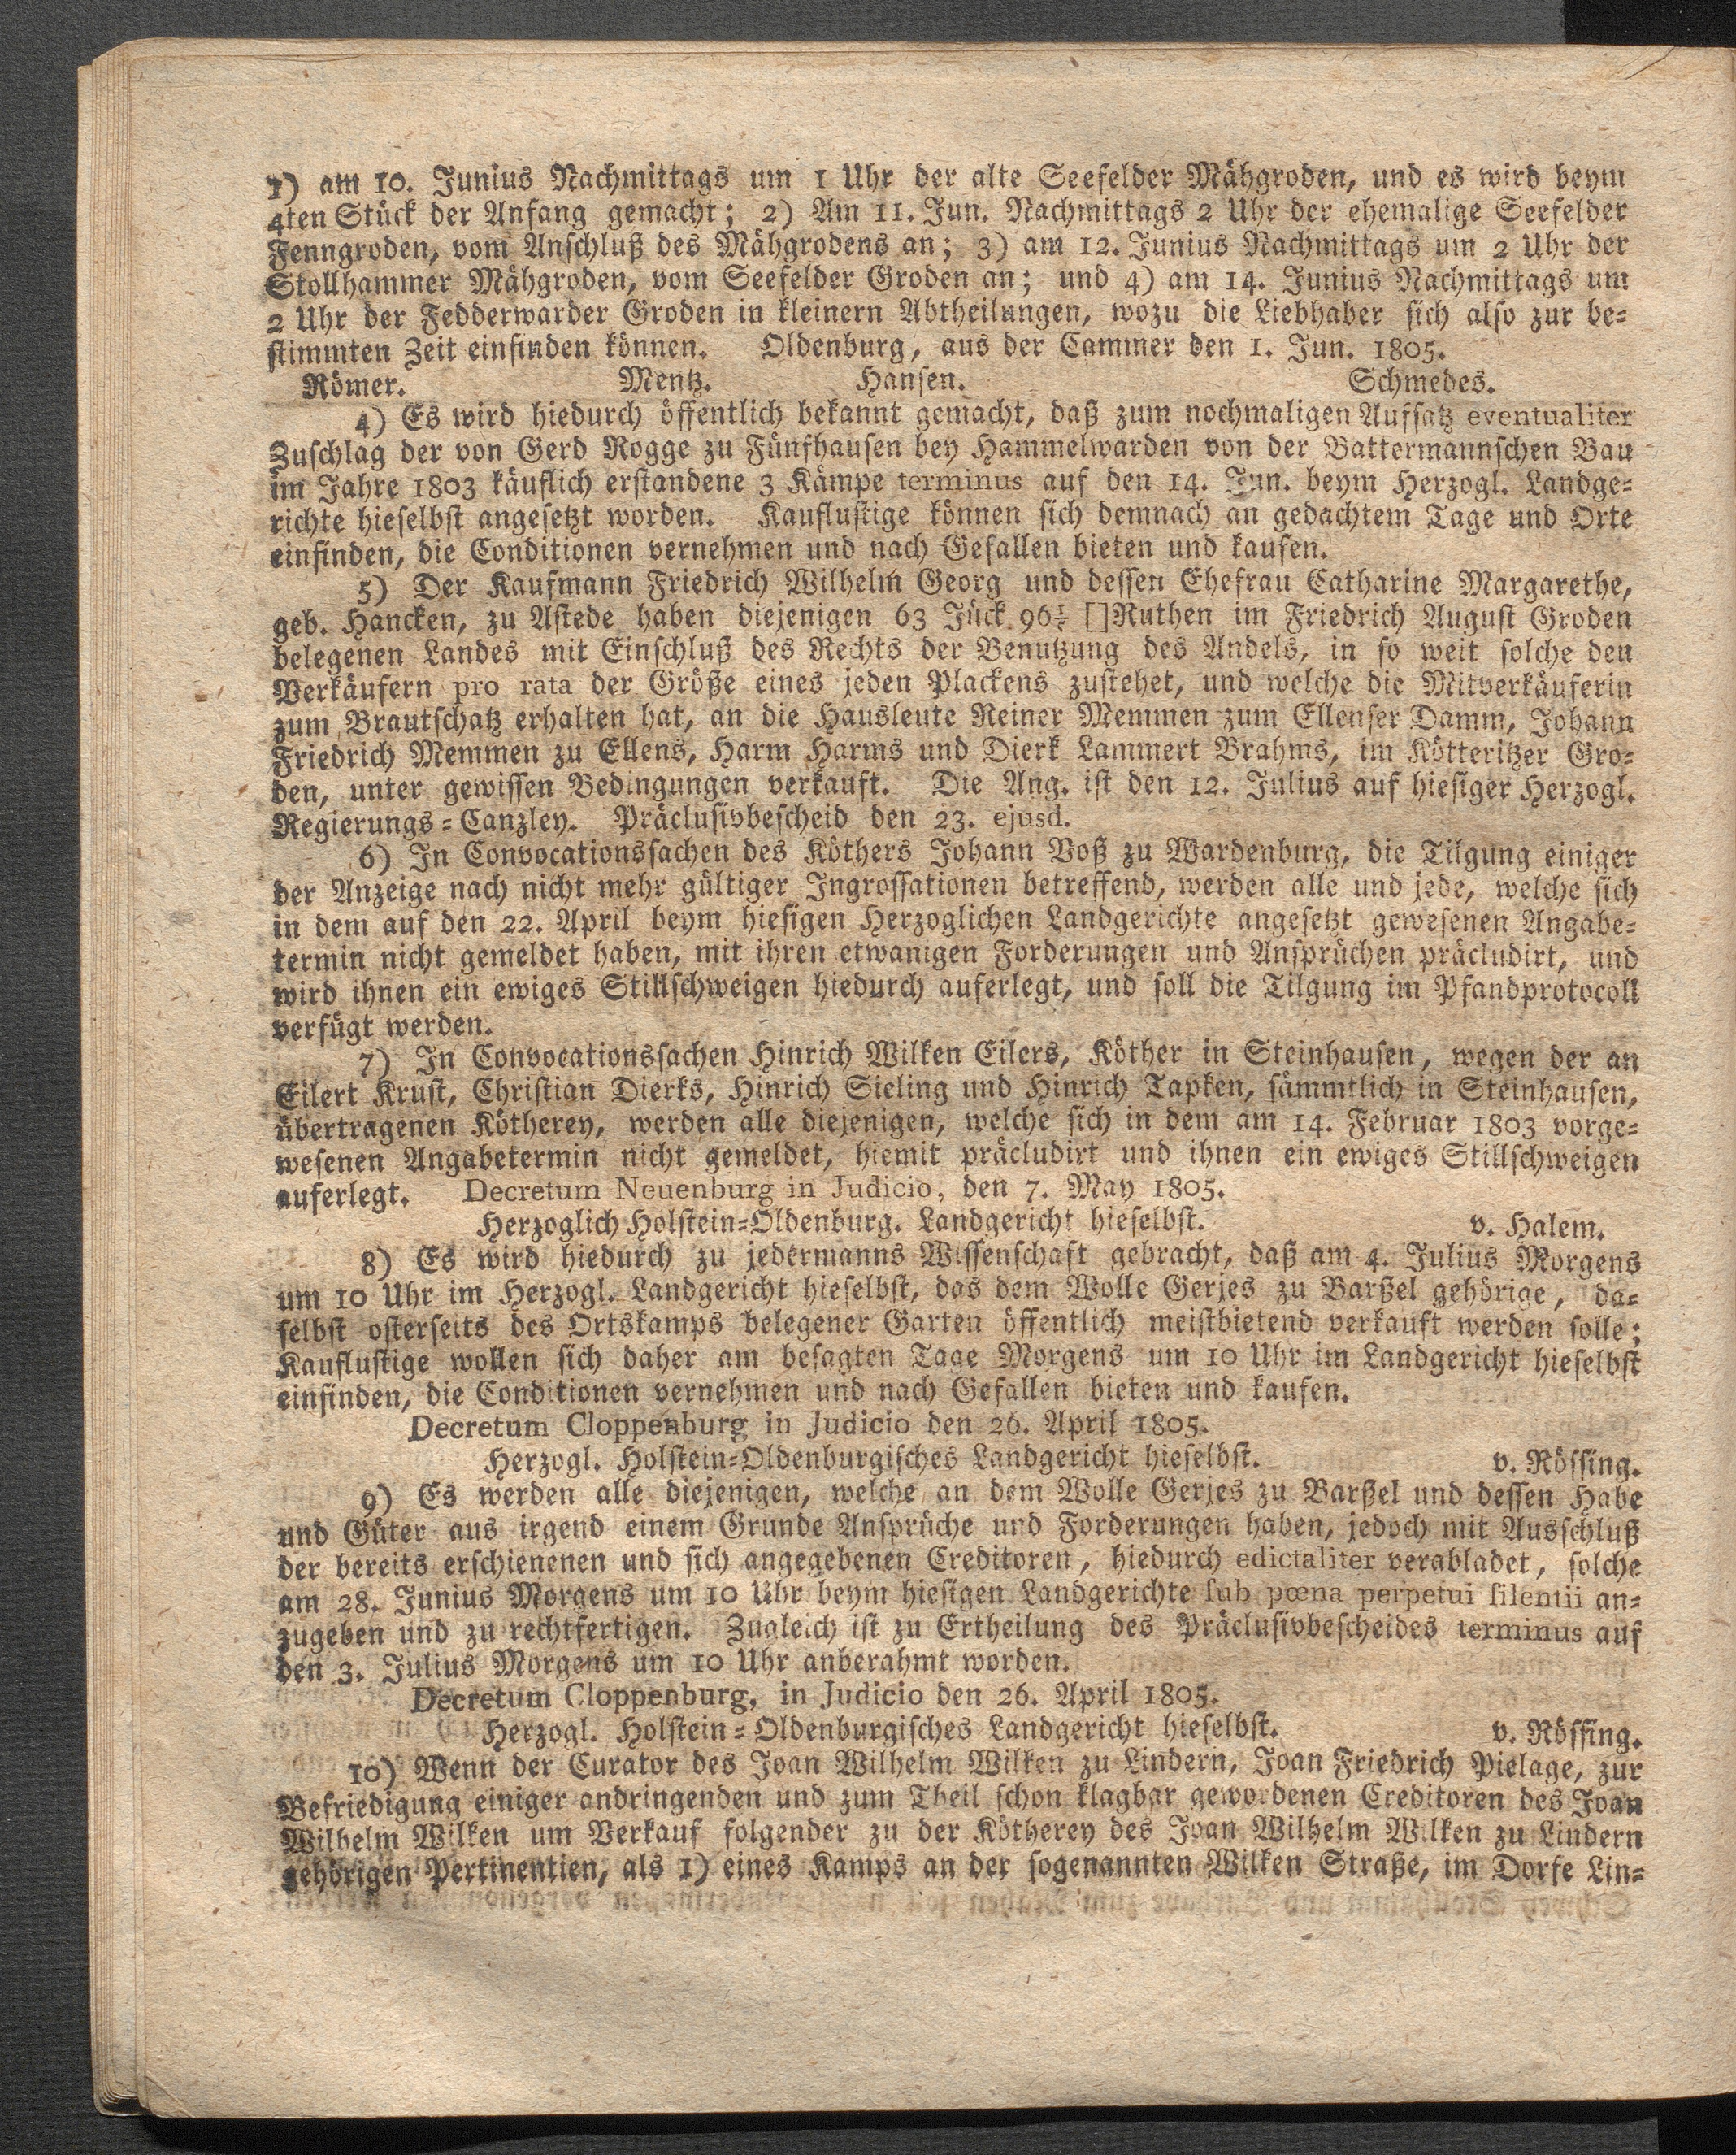 1) am 10. Junius Nachmittags um 1 Uhr der alte Seefelder Mähgroden, und es wird beym
4ten Stück der Anfang gemacht; 2) Am 11. Jun. Nachmittags 2 Uhr der ehemalige Seefelder
Fenngroden, vom Anschluß des Mähgrodens an; 3) am 12. Junius Nachmittags um 2 Uhr der
Stollhammer Mähgroden, vom Seefelder Groden an; und 4) am 14. Junius Nachmittags um
2 Uhr der Fedderwarder Groden in kleinern Abtheilungen, wozu die Liebhaber sich also zur be=
stimmten Zeit einfinden können. Oldenburg, aus der Cammer den 1. Jun. 1805.
Römer. Mentz. Hansen. Schmedes.
4) Es wird hiedurch öffentlich bekannt gemacht, daß zum nochmaligen Aufsatz eventualiter
Zuschlag der von Gerd Rogge zu Fünfhausen bey Hammelwarden von der Battermannschen Bau
im Jahre 1803 käuflich erstandene 3 Kämpe terminus auf den 14. Jun. beym Herzogl. Landge=
richte hieselbst angesetzt worden. Kauflustige können sich demnach an gedachtem Tage und Orte
einfinden, die Conditionen vernehmen und nach Gefallen bieten und kaufen.
5) Der Kaufmann Friedrich Wilhelm Georg und dessen Ehefrau Catharine Margarethe,
geb. Hancken, zu Astede haben diejenigen 63 Jück 96 []Ruthen im Friedrich August Groden
belegenen Landes mit Einschluß des Rechts der Benutzung des Andels, in so weit solche den
Verkäufern pro rata der Größe eines jeden Plackens zustehet, und welche die Mitverkäuferin
zum Brautschatz erhalten hat, an die Hausleute Reiner Memmen zum Ellenser Damm, Johann
Friedrich Memmen zu Ellens, Harm Harms und Dierk Lammert Brahms, im Kötteritzer Gro=
den, unter gewissen Bedingungen verkauft. Die Ang. ist den 12. Julius auf hiesiger Herzogl.
Regierungs=Canzley. Präclusivbescheid den 23. ejusd.
6) In Convocationssachen des Köthers Johann Voß zu Wardenburg, die Tilgung einiger
der Anzeige nach nicht mehr gültiger Ingrossationen betreffend, werden alle und jede, welche sich
in dem auf den 22. April beym hiesigen Herzoglichen Landgerichte angesetzt gewesenen Angabe=
termin nicht gemeldet haben, mit ihren etwanigen Forderungen und Ansprüchen präcludirt, und
wird ihnen ein ewiges Stillschweigen hiedurch auferlegt, und soll die Tilgung im Pfandprotocoll
verfügt werden.
7) In Convocationssachen Hinrich Wilken Eilers, Köther in Steinhausen, wegen der an
Eilert Krust, Christian Dierks, Hinrich Sieling und Hinrich Tapken, sämmtlich in Steinhausen,
übertragenen Kötherey, werden alle diejenigen, welche sich in dem am 14. Februar 1803 vorge=
wesenen Angabetermin nicht gemeldet, hiemit präcludirt und ihnen ein ewiges Stillschweigen
auferlegt. Decretum Neuenburg in Judicio, den 7. May 1805.
Herzoglich Holstein=Oldenburg. Landgericht hieselbst. v. Halem.
8) Es wird hiedurch zu jedermanns Wissenschaft gebracht, daß am 4. Julius Morgens
um 10 Uhr im Herzogl. Landgericht hieselbst, das dem Wolle Gerjes zu Barßel gehörige, da=
selbst osterseits des Ortskamps belegener Garten öffentlich meistbietend verkauft werden solle;
Kauflustige wollen sich daher am besagten Tage Morgens um 10 Uhr im Landgericht hieselbst
einfinden, die Conditionen vernehmen und nach Gefallen bieten und kaufen.
Decretum Cloppenburg in Judicio den 26. April 1805.
Herzogl. Holstein=Oldenburgisches Landgericht hieselbst. v. Rössing.
9) Es werden alle diejenigen, welche an dem Wolle Gerjes zu Barßel und dessen Habe
und Güter aus irgend einem Grunde Ansprüche und Forderungen haben, jedoch mit Ausschluß
der bereits erschienenen und sich angegebenen Creditoren, hiedurch edictaliter verabladet, solche
am 28. Junius Morgens um 10 Uhr beym hiesigen Landgerichte sub pœna perpetui silentii an=
zugeben und zu rechtfertigen. Zugleich ist zu Ertheilung des Präclusivbescheides terminus auf
den 3. Julius Morgens um 10 Uhr anberahmt worden.
Decretum Cloppenburg, in Judicio den 26. April 1805.
Herzogl. Holstein=Oldenburgisches Landgericht hieselbst. v. Rössing.
10) Wenn der Curator des Joan Wilhelm Wilken zu Lindern, Joan Friedrich Pielage, zur
Befriedigung einiger andringenden und zum Theil schon klagbar gewordenen Creditoren des Joan
Wilhelm Wilken um Verkauf folgender zu der Kötherey des Joan Wilhelm Wilken zu Lindern
gehörigen Pertinentien, als 1) eines Kamps an der sogenannten Wilken Straße, im Dorfe Lin=